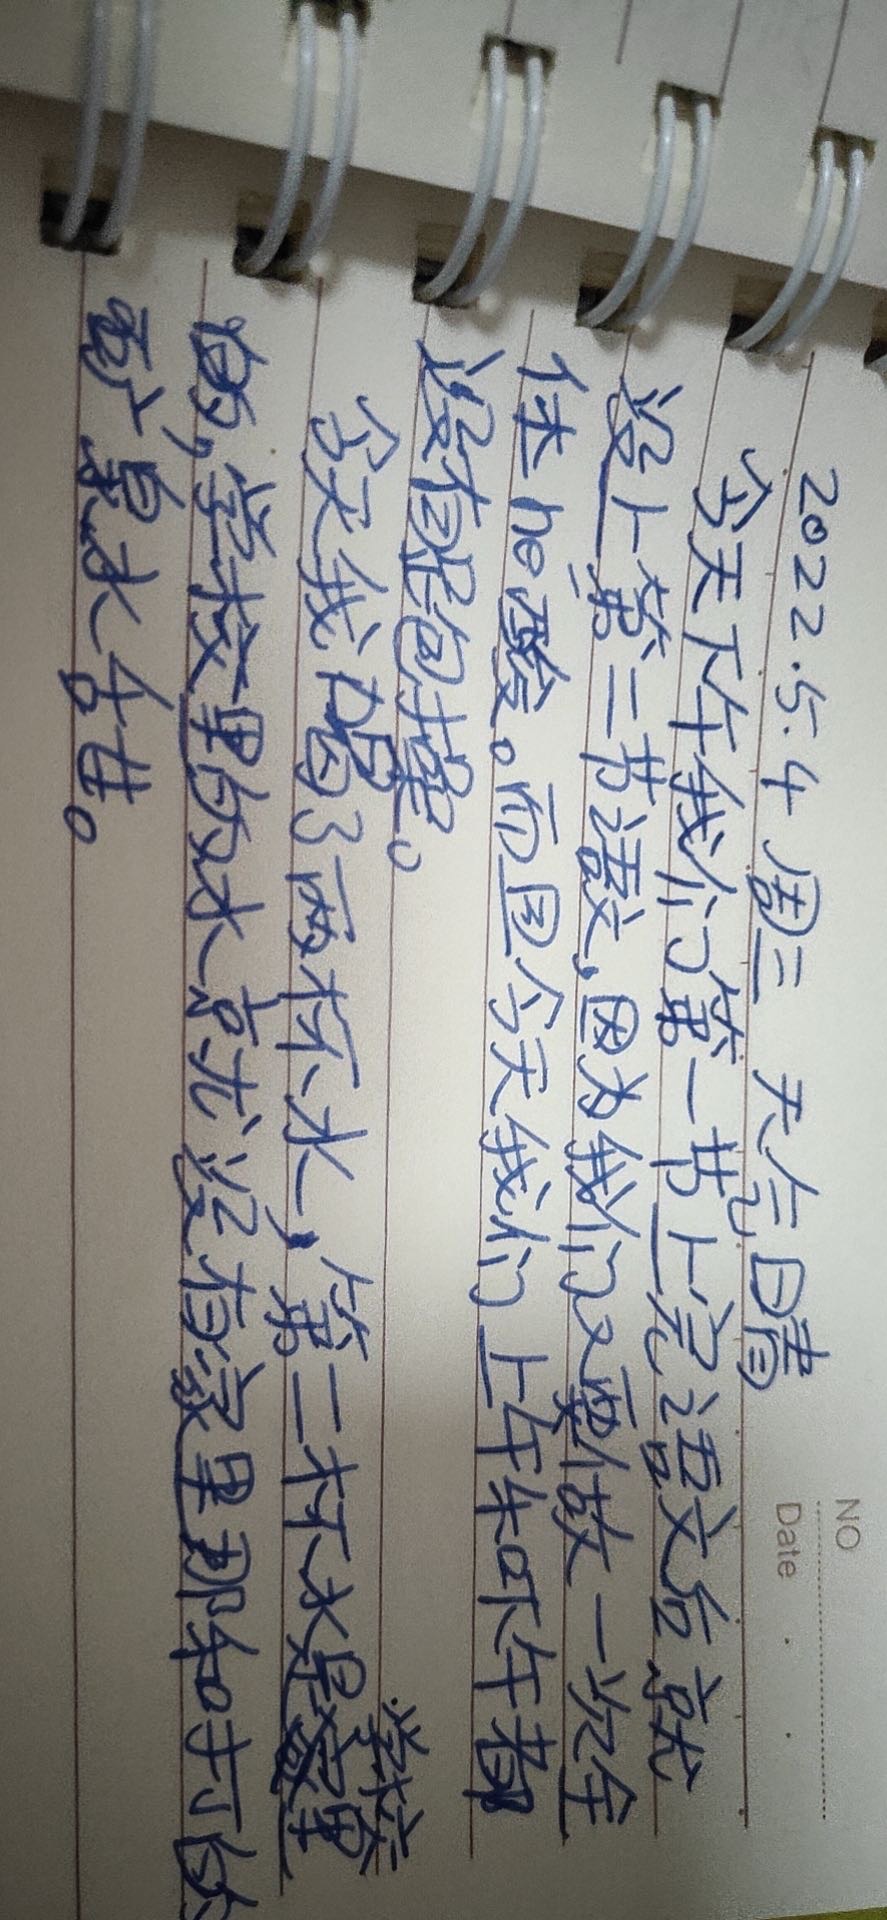 NO
Date
2022.5.4 周三 天气晴
今天下午我们第一节上完语文后就
没上第二节语文,因为我们又要做一次全
体he酸。而且今天我们上午和下午都
没有跑操。
今天我喝了两杯水,第二杯水是学校里
的,学校里的水竟就没有家里那和打的
矿泉水好甘。